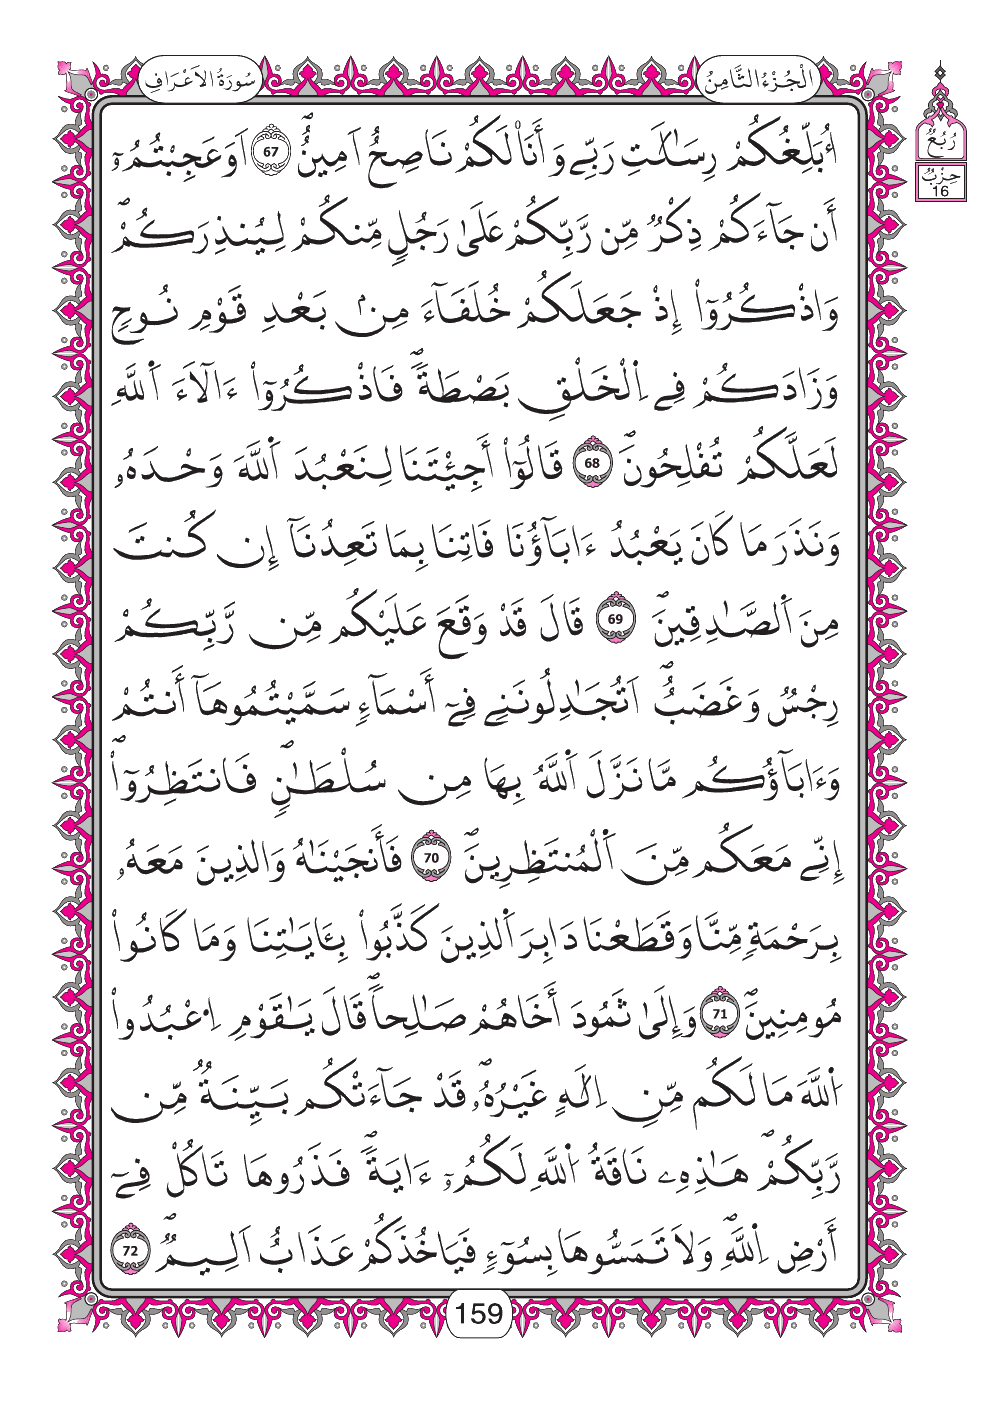 سُورَةُ الَاعْرَافِ
الْجُزْءُ الثَّامِنُ
رُبُعُ
حِزْبُ
16
أُبَلِّغُكُمْ رِسَٰلَٰتِ رَبِّے وَأَنَا لَكُمْ نَاصِحٌ اَمِينٌ 67 اَوَعَجِبْتُمُۥٓ
أَن جَآءَكُمْ ذِكْرٌ مِّن رَّبِّكُمْ عَلَىٰ رَجُلٍ مِّنكُمْ لِيُنذِرَكُمْ
وَاذْكُرُوٓاْ إِذْ جَعَلَكُمْ خُلَفَآءَ مِنۢ بَعْدِ قَوْمِ نُوحٍ
وَزَادَكُمْ فِے اِ۬لْخَلْقِ بَصْطَةً فَاذْكُرُوٓاْ ءَالَآءَ اَ۬للَّهِ
لَعَلَّكُمْ تُفْلِحُونَ 68 قَالُوٓاْ أَجِئْتَنَا لِنَعْبُدَ اَ۬للَّهَ وَحْدَهُۥ
وَنَذَرَ مَا كَانَ يَعْبُدُ ءَابَآؤُنَا فَاتِنَا بِمَا تَعِدُنَآ إِن كُنتَ
مِنَ اَ۬لصَّٰدِقِينَ 69 قَالَ قَدْ وَقَعَ عَلَيْكُم مِّن رَّبِّكُمْ
رِجْسٌ وَغَضَبٌ اَتُجَٰدِلُونَنِے فِےٓ أَسْمَآءٍ سَمَّيْتُمُوهَآ أَنتُمْ
وَءَابَآؤُكُم مَّا نَزَّلَ اَ۬للَّهُ بِهَا مِن سُلْطَٰنٍ فَانتَظِرُوٓاْ
إِنِّے مَعَكُم مِّنَ اَ۬لْمُنتَظِرِينَ 70 فَأَنجَيْنَٰهُ وَالذِينَ مَعَهُۥ
بِرَحْمَةٍ مِّنَّا وَقَطَعْنَا دَابِرَ اَ۬لذِينَ كَذَّبُواْ بِـَٔايَٰتِنَا وَمَا كَانُواْ
مُومِنِينَ 71 وَإِلَىٰ ثَمُودَ أَخَاهُمْ صَٰلِحاً قَالَ يَٰقَوْمِ اِ۟عْبُدُواْ
اُ۬للَّهَ مَا لَكُم مِّنِ اِلَٰهٍ غَيْرُهُۥ قَدْ جَآءَتْكُم بَيِّنَةٌ مِّن
رَّبِّكُمْ هَٰذِهِۦ نَاقَةُ اُ۬للَّهِ لَكُمُۥٓ ءَايَةً فَذَرُوهَا تَاكُلْ فِےٓ
أَرْضِ اِ۬للَّهِ وَلَا تَمَسُّوهَا بِسُوٓءٍ فَيَاخُذَكُمْ عَذَابٌ اَلِيمٌ 72
159